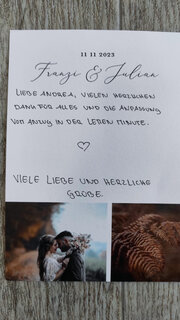 11 11 2023
Franzi & Julian
LIEBE ANDREA, VIELEN HERZLICHEN
DANK FÜR ALLES UND DIE ANPASSUNG
VOM ANZUG IN DER LETZTEN MINUTE.
VIELE LIEBE UND HERZLICHE
GRÜßE.